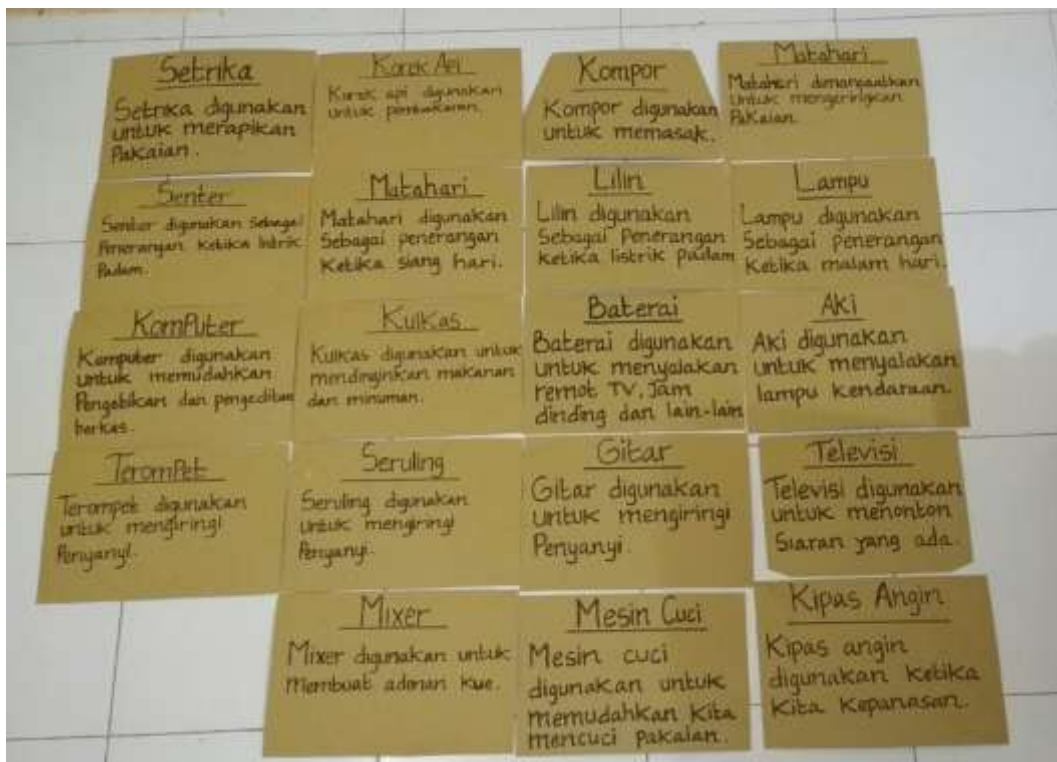 Setrika
Setrika digunakan
untuk merapikan
Pakaian.
Korek Api
Korek api digunakan
untuk pembakaran.
Kompor
Kompor digunakan
untuk memasak.
Matahari
Matahari dimanfaatkan
Untuk mengeringkan
Pakaian.
Senter
Senter digunakan Sebagai
Penerangan Ketika listrik
Padam.
Matahari
Matahari digunakan
Sebagai penerangan
Ketika siang hari.
Lilin
Lilin digunakan
Sebagai Penerangan
Ketika listrik padam
Lampu
Lampu digunakan
Sebagai penerangan
Ketika malam hari.
Komputer
Komputer digunakan
untuk memudahkan
Pengetikan dan pengeditan
berkas.
Kulkas
Kulkas digunakan untuk
mendinginkan makanan
dan minuman.
Baterai
Baterai digunakan
untuk menyalakan
remot TV, Jam
dinding dan lain-lain
Aki
Aki digunakan
untuk menyalakan
lampu kendaraan.
Terompet
Terompet digunakan
untuk mengiringi
Penyanyi.
Seruling
Seruling digunakan
untuk mengiringi
Penyanyi.
Gitar
Gitar digunakan
untuk mengiringi
Penyanyi.
Televisi
Televisi digunakan
untuk menonton
Siaran yang ada.
Mixer
Mixer digunakan untuk
Membuat adonan kue.
Mesin Cuci
Mesin cuci
digunakan untuk
memudahkan Kita
mencuci pakaian.
Kipas Angin
Kipas angin
digunakan ketika
Kita Kepanasan.